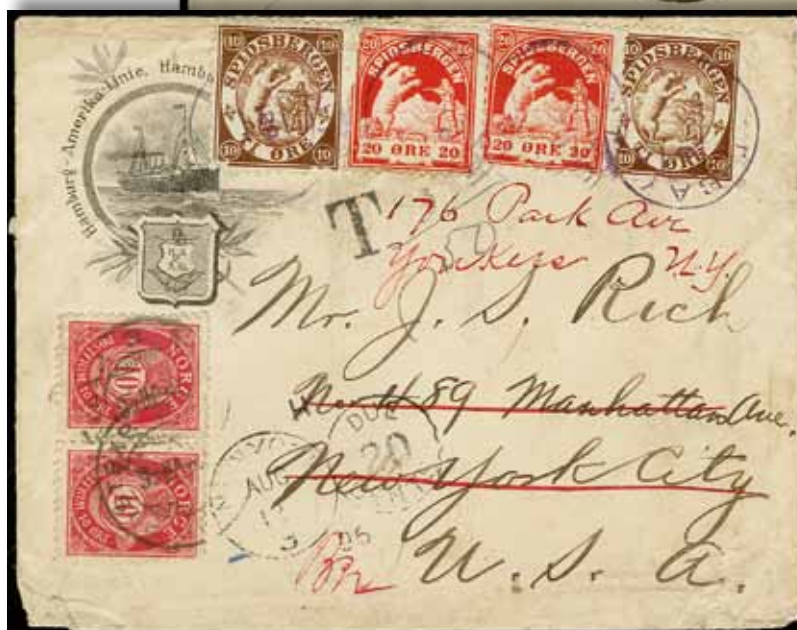 Hamburg-Amerika-Linie, Hamb
10 SPIDSBERGEN 10
10 TI ØRE 10
20 SPIDSBERGEN 20
20 ØRE 20
20 SPIDSBERGEN 20
20 ØRE 20
10 SPIDSBERGEN
10 TI ØRE 20
T
176 Park Ave
Yonkers N.Y.
Mr. J. S. Rich
489 Manhattan Ave.
New York City
U. S. A.
NORGE
10
NORGE
10
DUE
20
AUG
3
06